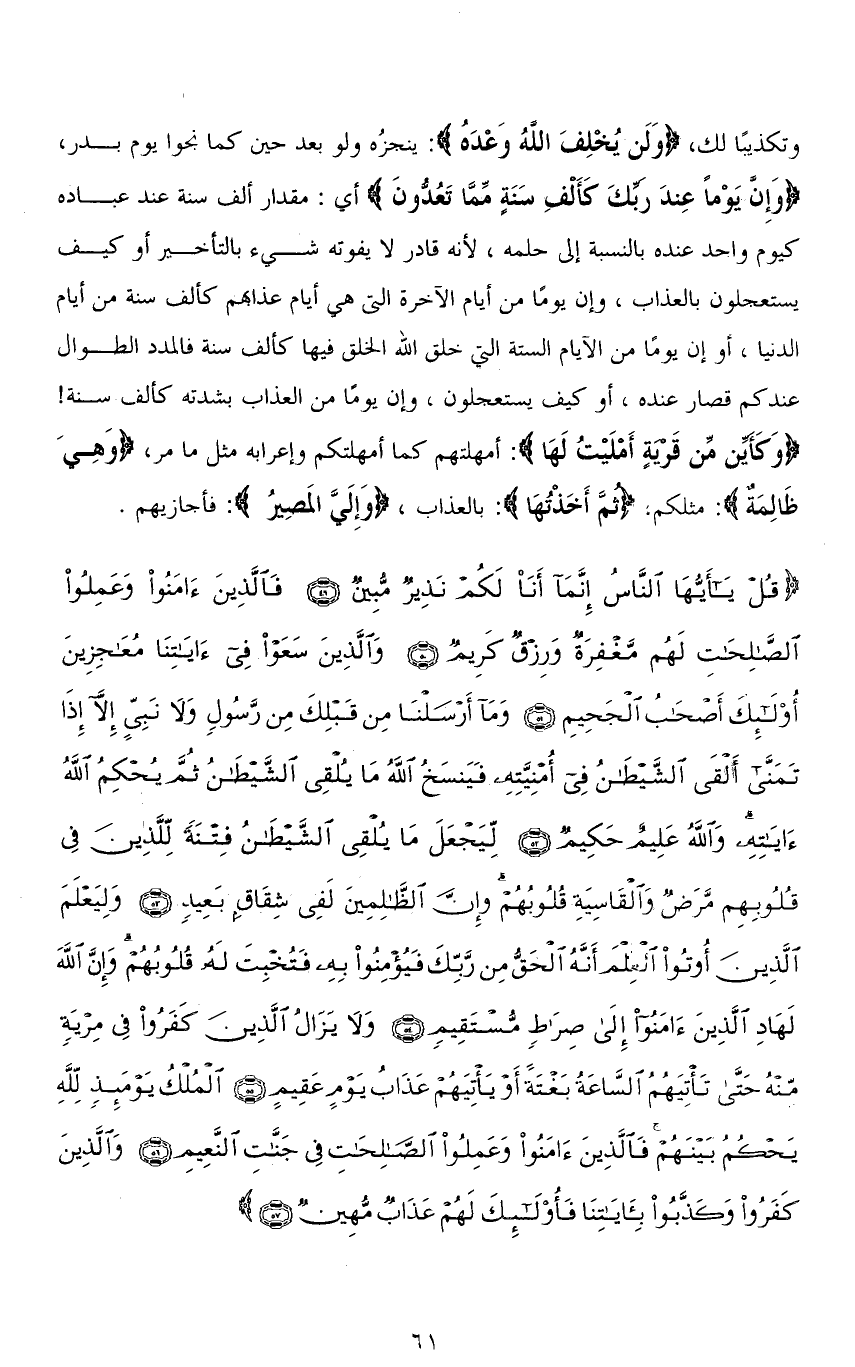 وتكذيبًا لك، ﴿وَلَن يُخْلِفَ اللَّهُ وَعْدَهُ﴾: ينجزُه ولو بعد حين كما نحوا يوم بـــدر،
﴿وَإِنَّ يَوْماً عِندَ رَبِّكَ كَأَلْفِ سَنَةٍ مِّمَّا تَعُدُّونَ﴾ أي : مقدار ألف سنة عند عبـــاده
كيوم واحد عنده بالنسبة إلى حلمه ، لأنه قادر لا يفوته شـــيء بالتأخـــير أو كيـــف
يستعجلون بالعذاب ، وإن يومًا من أيام الآخرة التى هي أيام عذابهم كألف سنة من أيام
الدنيا ، أو إن يومًا من الأيام الستة التي خلق الله الخلق فيها كألف سنة فالمدد الطـــوال
عندكم قصار عنده ، أو كيف يستعجلون ، وإن يومًا من العذاب بشدته كألف ســنة!
﴿وَكَأَيِّن مِّن قَرْيَةٍ أَمْلَيْتُ لَهَا﴾: أمهلتهم كما أمهلتكم وإعرابه مثل ما مر، ﴿وَهِـــيَ
ظَالِمَةٌ﴾: مثلكم: ﴿ثُمَّ أَخَذْتُهَا﴾: بالعذاب ، ﴿وَإِلَيَّ الْمَصِيرُ﴾: فأجازيهم .
﴿قُلْ يَـٰٓأَيُّهَا ٱلنَّاسُ إِنَّمَآ أَنَا۠ لَكُمْ نَذِيرٌ مُّبِينٌ ٤٩ فَٱلَّذِينَ ءَامَنُوا۟ وَعَمِلُوا۟
ٱلصَّـٰلِحَـٰتِ لَهُم مَّغْفِرَةٌ وَرِزْقٌ كَرِيمٌ ٥٠ وَٱلَّذِينَ سَعَوْا۟ فِىٓ ءَايَـٰتِنَا مُعَـٰجِزِينَ
أُو۟لَـٰٓئِكَ أَصْحَـٰبُ ٱلْجَحِيمِ ٥١ وَمَآ أَرْسَلْنَا مِن قَبْلِكَ مِن رَّسُولٍ وَلَا نَبِىٍّ إِلَّآ إِذَا
تَمَنَّىٰٓ أَلْقَى ٱلشَّيْطَـٰنُ فِىٓ أُمْنِيَّتِهِۦ فَيَنسَخُ ٱللَّهُ مَا يُلْقِى ٱلشَّيْطَـٰنُ ثُمَّ يُحْكِمُ ٱللَّهُ
ءَايَـٰتِهِۦ ۗ وَٱللَّهُ عَلِيمٌ حَكِيمٌ ٥٢ لِّيَجْعَلَ مَا يُلْقِى ٱلشَّيْطَـٰنُ فِتْنَةً لِّلَّذِينَ فِى
قُلُوبِهِم مَّرَضٌ وَٱلْقَاسِيَةِ قُلُوبُهُمْ ۗ وَإِنَّ ٱلظَّـٰلِمِينَ لَفِى شِقَاقٍۭ بَعِيدٍ ٥٣ وَلِيَعْلَمَ
ٱلَّذِينَ أُوتُوا۟ ٱلْعِلْمَ أَنَّهُ ٱلْحَقُّ مِن رَّبِّكَ فَيُؤْمِنُوا۟ بِهِۦ فَتُخْبِتَ لَهُۥ قُلُوبُهُمْ ۗ وَإِنَّ ٱللَّهَ
لَهَادِ ٱلَّذِينَ ءَامَنُوٓا۟ إِلَىٰ صِرَٰطٍ مُّسْتَقِيمٍ ٥٤ وَلَا يَزَالُ ٱلَّذِينَ كَفَرُوا۟ فِى مِرْيَةٍ
مِّنْهُ حَتَّىٰ تَأْتِيَهُمُ ٱلسَّاعَةُ بَغْتَةً أَوْ يَأْتِيَهُمْ عَذَابُ يَوْمٍ عَقِيمٍ ٥٥ ٱلْمُلْكُ يَوْمَئِذٍ لِّلَّهِ
يَحْكُمُ بَيْنَهُمْ ۚ فَٱلَّذِينَ ءَامَنُوا۟ وَعَمِلُوا۟ ٱلصَّـٰلِحَـٰتِ فِى جَنَّـٰتِ ٱلنَّعِيمِ ٥٦ وَٱلَّذِينَ
كَفَرُوا۟ وَكَذَّبُوا۟ بِـَٔايَـٰتِنَا فَأُو۟لَـٰٓئِكَ لَهُمْ عَذَابٌ مُّهِينٌ ٥٧﴾
٦١